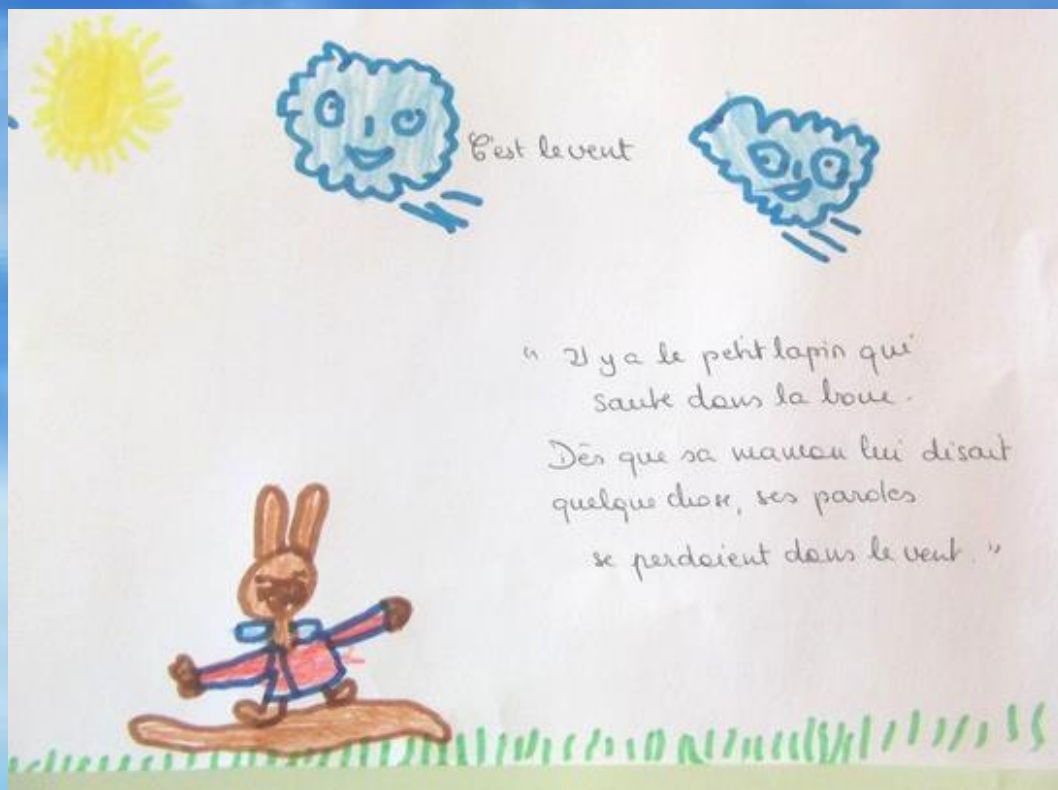 C'est le vent
“ Il y a le petit lapin qui
saute dans la boue.
Dès que sa maman lui disait
quelque chose, ses paroles
se perdaient dans le vent. ”